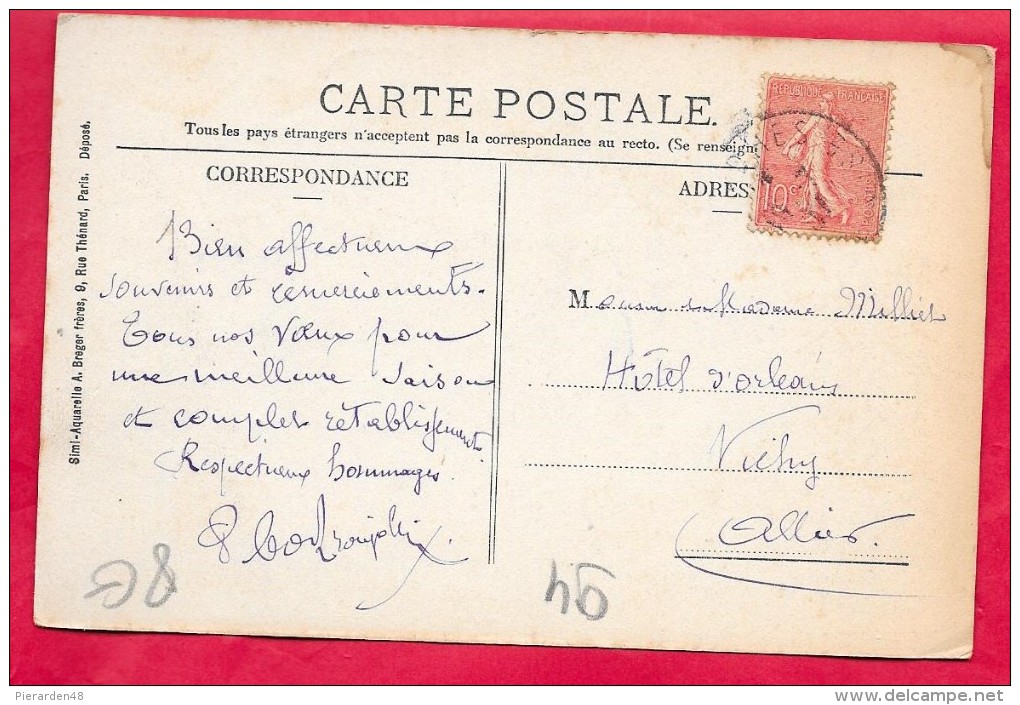 CARTE POSTALE.
Tous les pays étrangers n'acceptent pas la correspondance au recto. (Se renseign
CORRESPONDANCE
Bien affectueux
souvenirs et remerciements.
Tous nos vœux pour
une meilleure saison
et complet rétablissement
Respectueux hommages.
ADRES
REPUBLIQUE FRANÇAISE
10 c
M
et Madame Milliet
Hôtel d'Orléans
Vichy
Allier.
Simi-Aquarelle A. Breger frères, 9, Rue Thénard, Paris. Déposé.
Pierarden48
www.delcampe.net